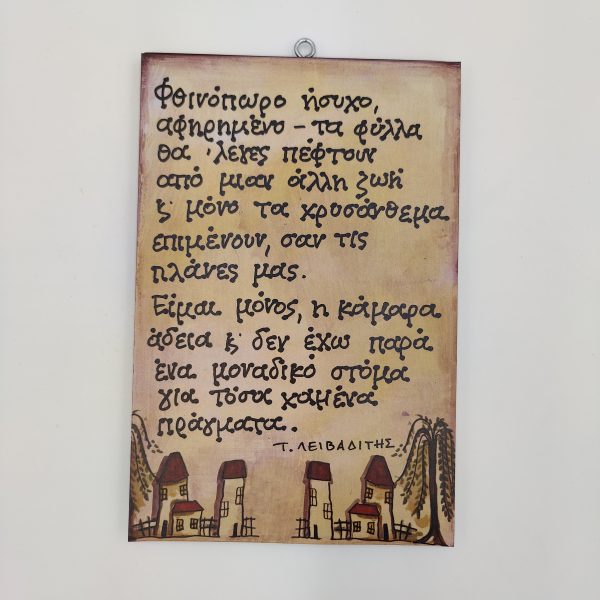 Φθινόπωρο ήσυχο,
αφηρημένο – τα φύλλα
θα 'λεγες πέφτουν
από μιαν άλλη ζωή
κ' μόνο τα χρυσάνθεμα
επιμένουν, σαν τις
πλάνες μας.
Είμαι μόνος, η κάμαρα
άδεια κ' δεν έχω παρά
ένα μοναδικό στόμα
για τόσα χαμένα
πράγματα.
Τ. ΛΕΙΒΑΔΙΤΗΣ